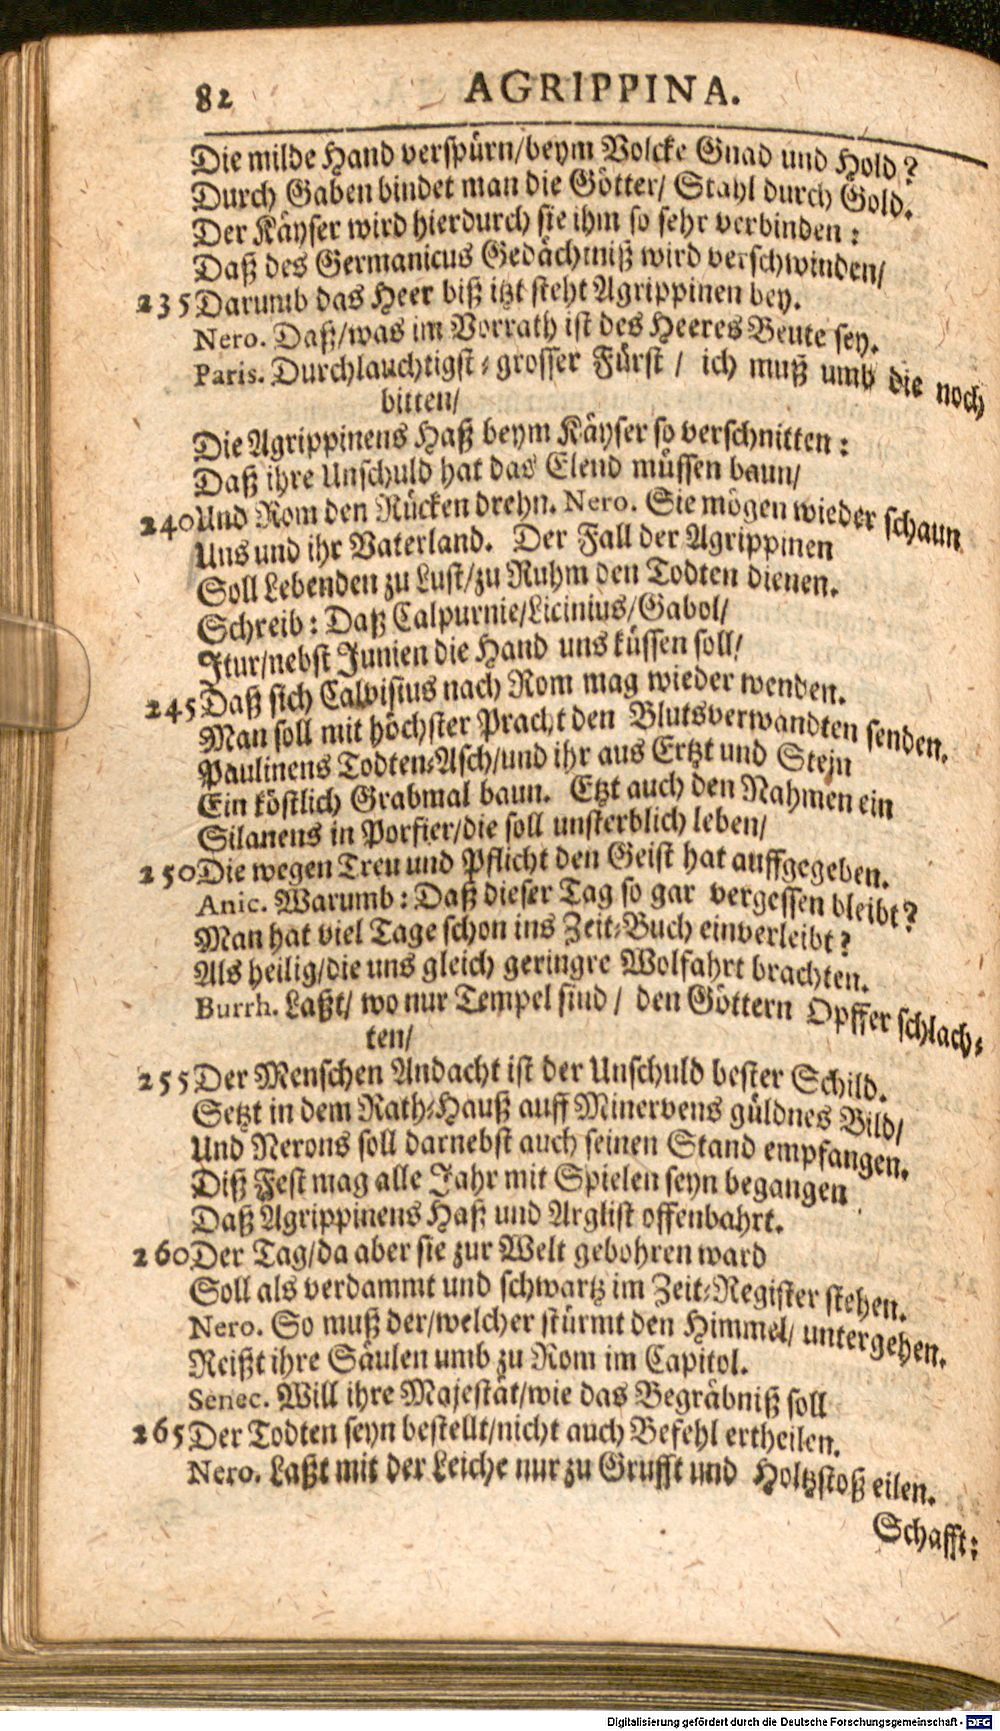 82 AGRIPPINA.
Die milde Hand verspürn/beym Volcke Gnad und Hold?
Durch Gaben bindet man die Götter/ Stahl durch Gold.
Der Käyser wird hierdurch sie ihm so sehr verbinden:
Daß des Germanicus Gedächtniß wird verschwinden/
235 Darumb das Heer biß itzt steht Agrippinen bey.
Nero. Daß/was im Vorrath ist des Heeres Beute sey.
Paris. Durchlauchtigst-grosser Fürst / ich muß umb die noch
bitten/
Die Agrippinens Haß beym Käyser so verschnitten:
Daß ihre Unschuld hat das Elend müssen baun/
240 Und Rom den Rücken drehn. Nero. Sie mögen wieder schaun
Uns und ihr Vaterland. Der Fall der Agrippinen
Soll Lebenden zu Lust/zu Ruhm den Todten dienen.
Schreib: Daß Calpurnie/Licinius/Gabol/
Itur/nebst Junien die Hand uns küssen soll/
245 Daß sich Calvisius nach Rom mag wieder wenden.
Man soll mit höchster Pracht den Blutsverwandten senden.
Paulinens Todten-Asch/und ihr aus Ertzt und Stein
Ein köstlich Grabmal baun. Etzt auch den Nahmen ein
Silanens in Porfier/die soll unsterblich leben/
250 Die wegen Treu und Pflicht den Geist hat auffgegeben.
Anic. Warumb: Daß dieser Tag so gar vergessen bleibt?
Man hat viel Tage schon ins Zeit-Buch einverleibt?
Als heilig/die uns gleich geringre Wolfahrt brachten.
Burrh. Laßt/ wo nur Tempel sind / den Göttern Opffer schlach-
ten/
255 Der Menschen Andacht ist der Unschuld bester Schild.
Setzt in dem Rath-Hauß auff Minervens güldnes Bild/
Und Nerons soll darnebst auch seinen Stand empfangen.
Diß Fest mag alle Jahr mit Spielen seyn begangen
Daß Agrippinens Haß und Arglist offenbahrt.
260 Der Tag/da aber sie zur Welt gebohren ward
Soll als verdammt und schwartz im Zeit-Register stehen.
Nero. So muß der/welcher stürmt den Himmel/ untergehen.
Reißt ihre Säulen umb zu Rom im Capitol.
Senec. Will ihre Majestät/wie das Begräbniß soll
265 Der Todten seyn bestellt/nicht auch Befehl ertheilen.
Nero. Laßt mit der Leiche nur zu Grufft und Holtzstoß eilen.
Schafft:
Digitalisierung gefördert durch die Deutsche Forschungsgemeinschaft - DFG